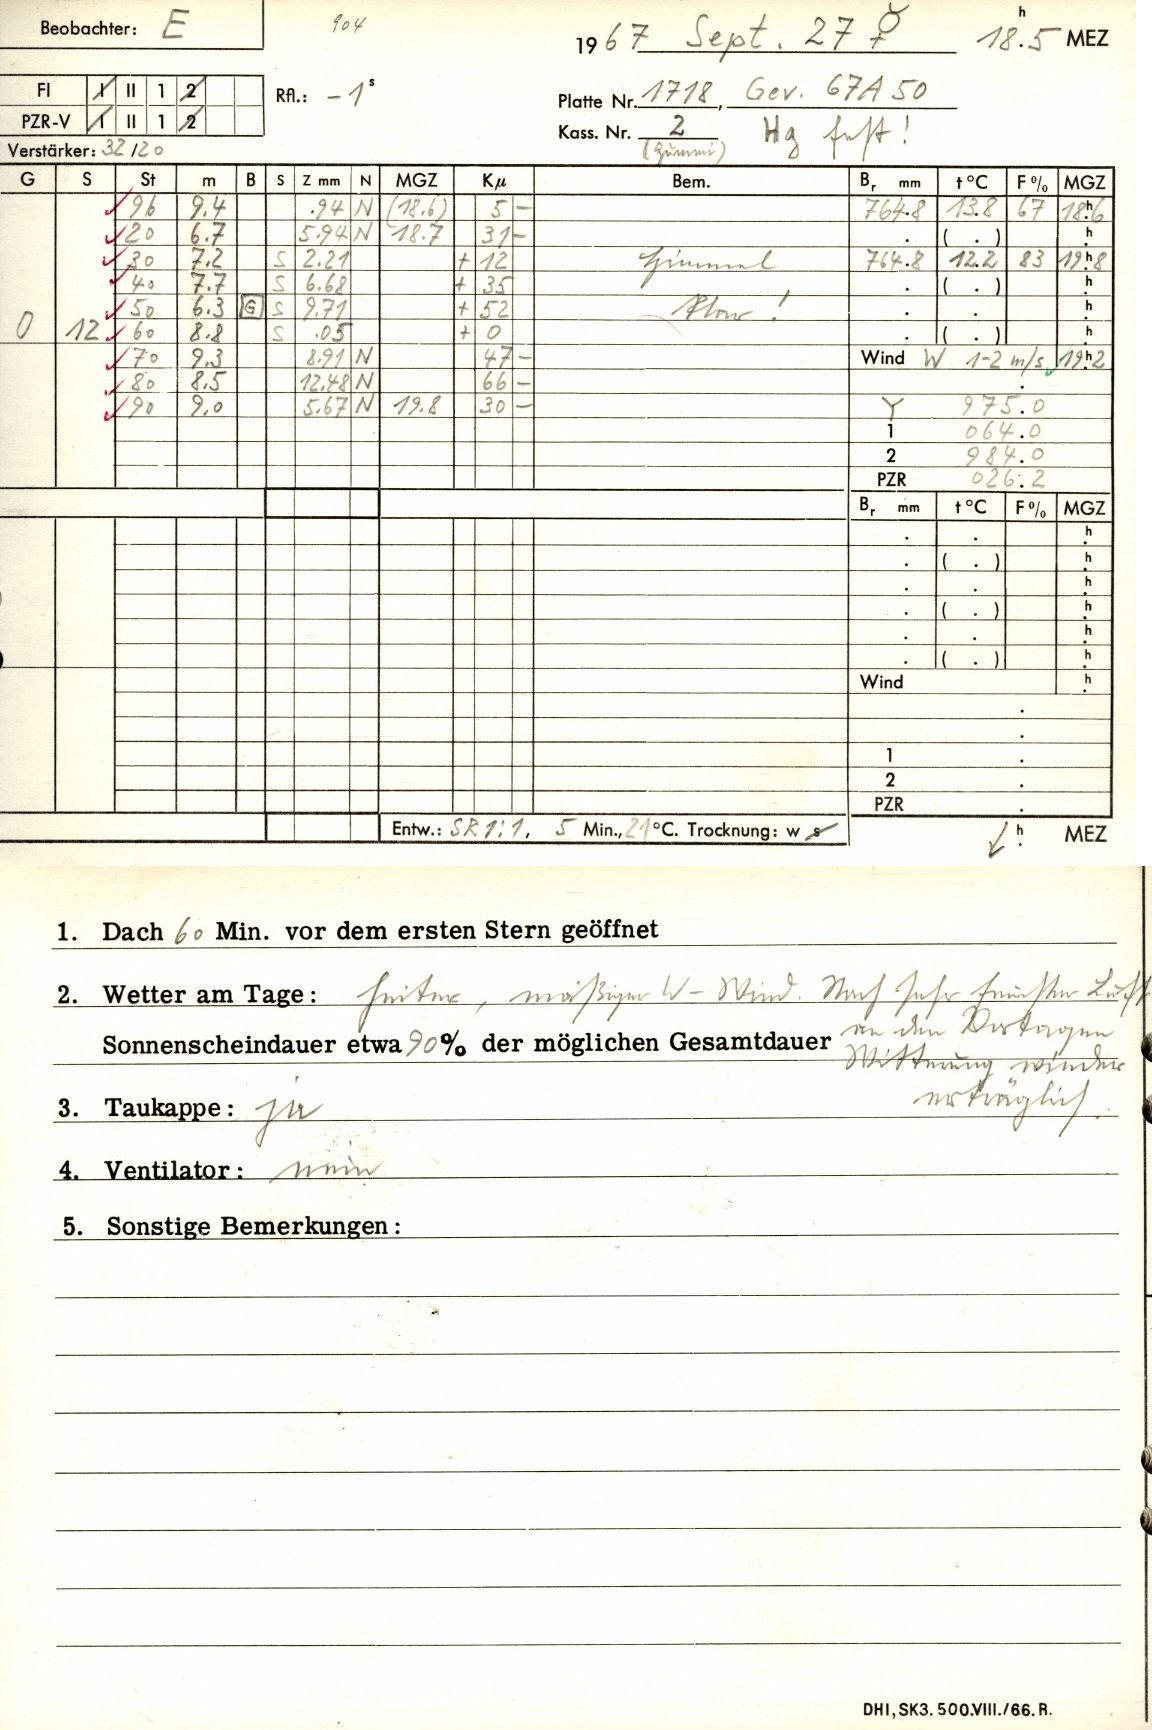 Beobachter: E 904 1967 Sept. 27 ☿ 18.5 h MEZ
FI I II 1 2 Rfl.: -1 s Platte Nr. 1718, Gev. 67A50
PZR-V I II 1 2 Kass. Nr. 2 Hg fest!
Verstärker: 32/20 (Gummi)
G S St m B S Z mm N MGZ Kμ Bem. Br mm t°C F% MGZ
96 9.4 .94 N (18.6) 5 - 764.8 13.8 67 18h6
20 6.7 5.94 N 18.7 31 - . ( . ) h
30 7.2 S 2.21 + 12 Himmel 764.8 12.2 83 19h8
40 7.7 S 6.68 + 35 . ( . ) h
50 6.3 G S 9.71 + 52 klar! . . h
0 12 60 8.8 S .05 + 0 . ( . ) h
70 9.3 8.91 N 47 - Wind W 1-2 m/s 19h2
80 8.5 12.48 N 66 - .
90 9.0 5.67 N 19.8 30 - Y 975.0
1 064.0
2 984.0
PZR 026.2
Br mm t°C F% MGZ
. . h
. ( . ) h
. . h
. ( . ) h
. . h
. ( . ) h
Wind h
.
.
1 .
2 .
PZR .
Entw.: SR 1:1, 5 Min., 21 °C. Trocknung: w s h MEZ
1. Dach 60 Min. vor dem ersten Stern geöffnet
2. Wetter am Tage: heiter, mäßiger W-Wind. Nach sehr feuchter Luft
an den Vortagen
Sonnenscheindauer etwa 90% der möglichen Gesamtdauer
Witterung wieder
erträglich.
3. Taukappe: ja
4. Ventilator: nein
5. Sonstige Bemerkungen:
DHI, SK3. 500.VIII./66. R.